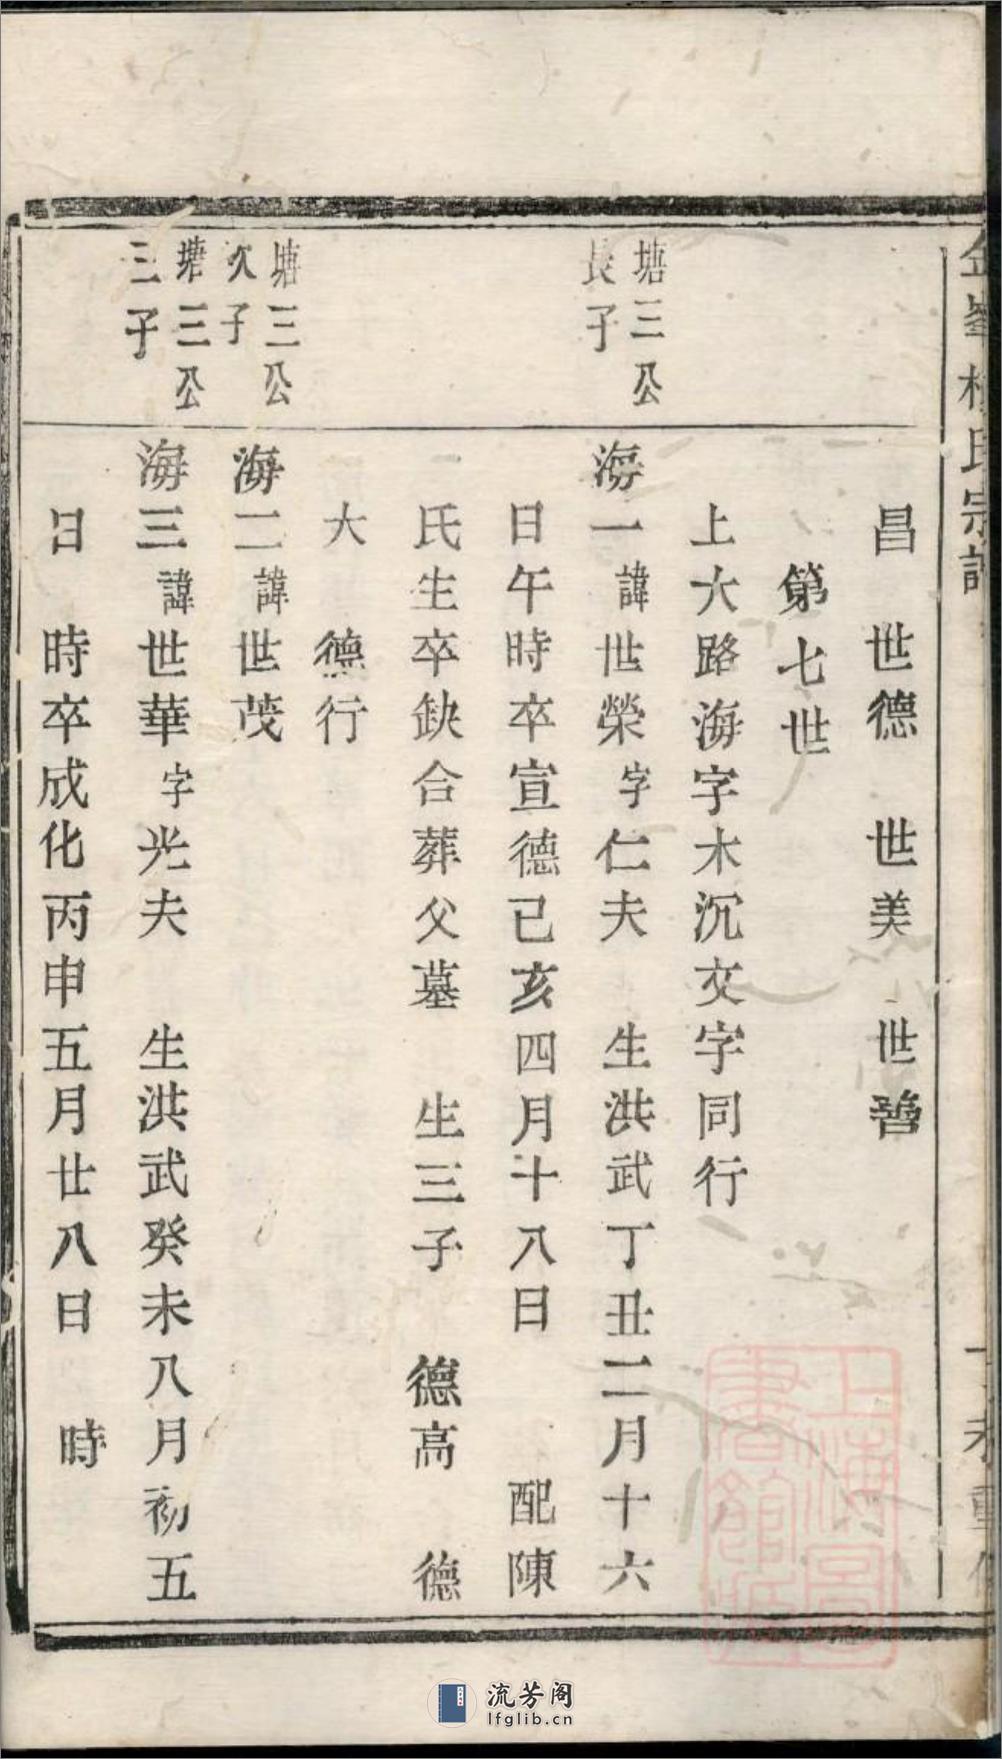 氏宗譜
昌 世德 世美 世善
第七世
上大路海字木沉文字同行
塘三公
長子
海一諱世榮字仁夫 生洪武丁丑二月十六
日午時卒宣德己亥四月十八日 配陳
氏生卒缺合葬父墓 生三子 德高 德
大 德行
塘三公
次子
海二諱世茂
塘三公
三子
海三諱世華字光夫 生洪武癸未八月初五
日 時卒成化丙申五月廿八日 時
上海圖
書館藏
流芳阁
lfglib.cn